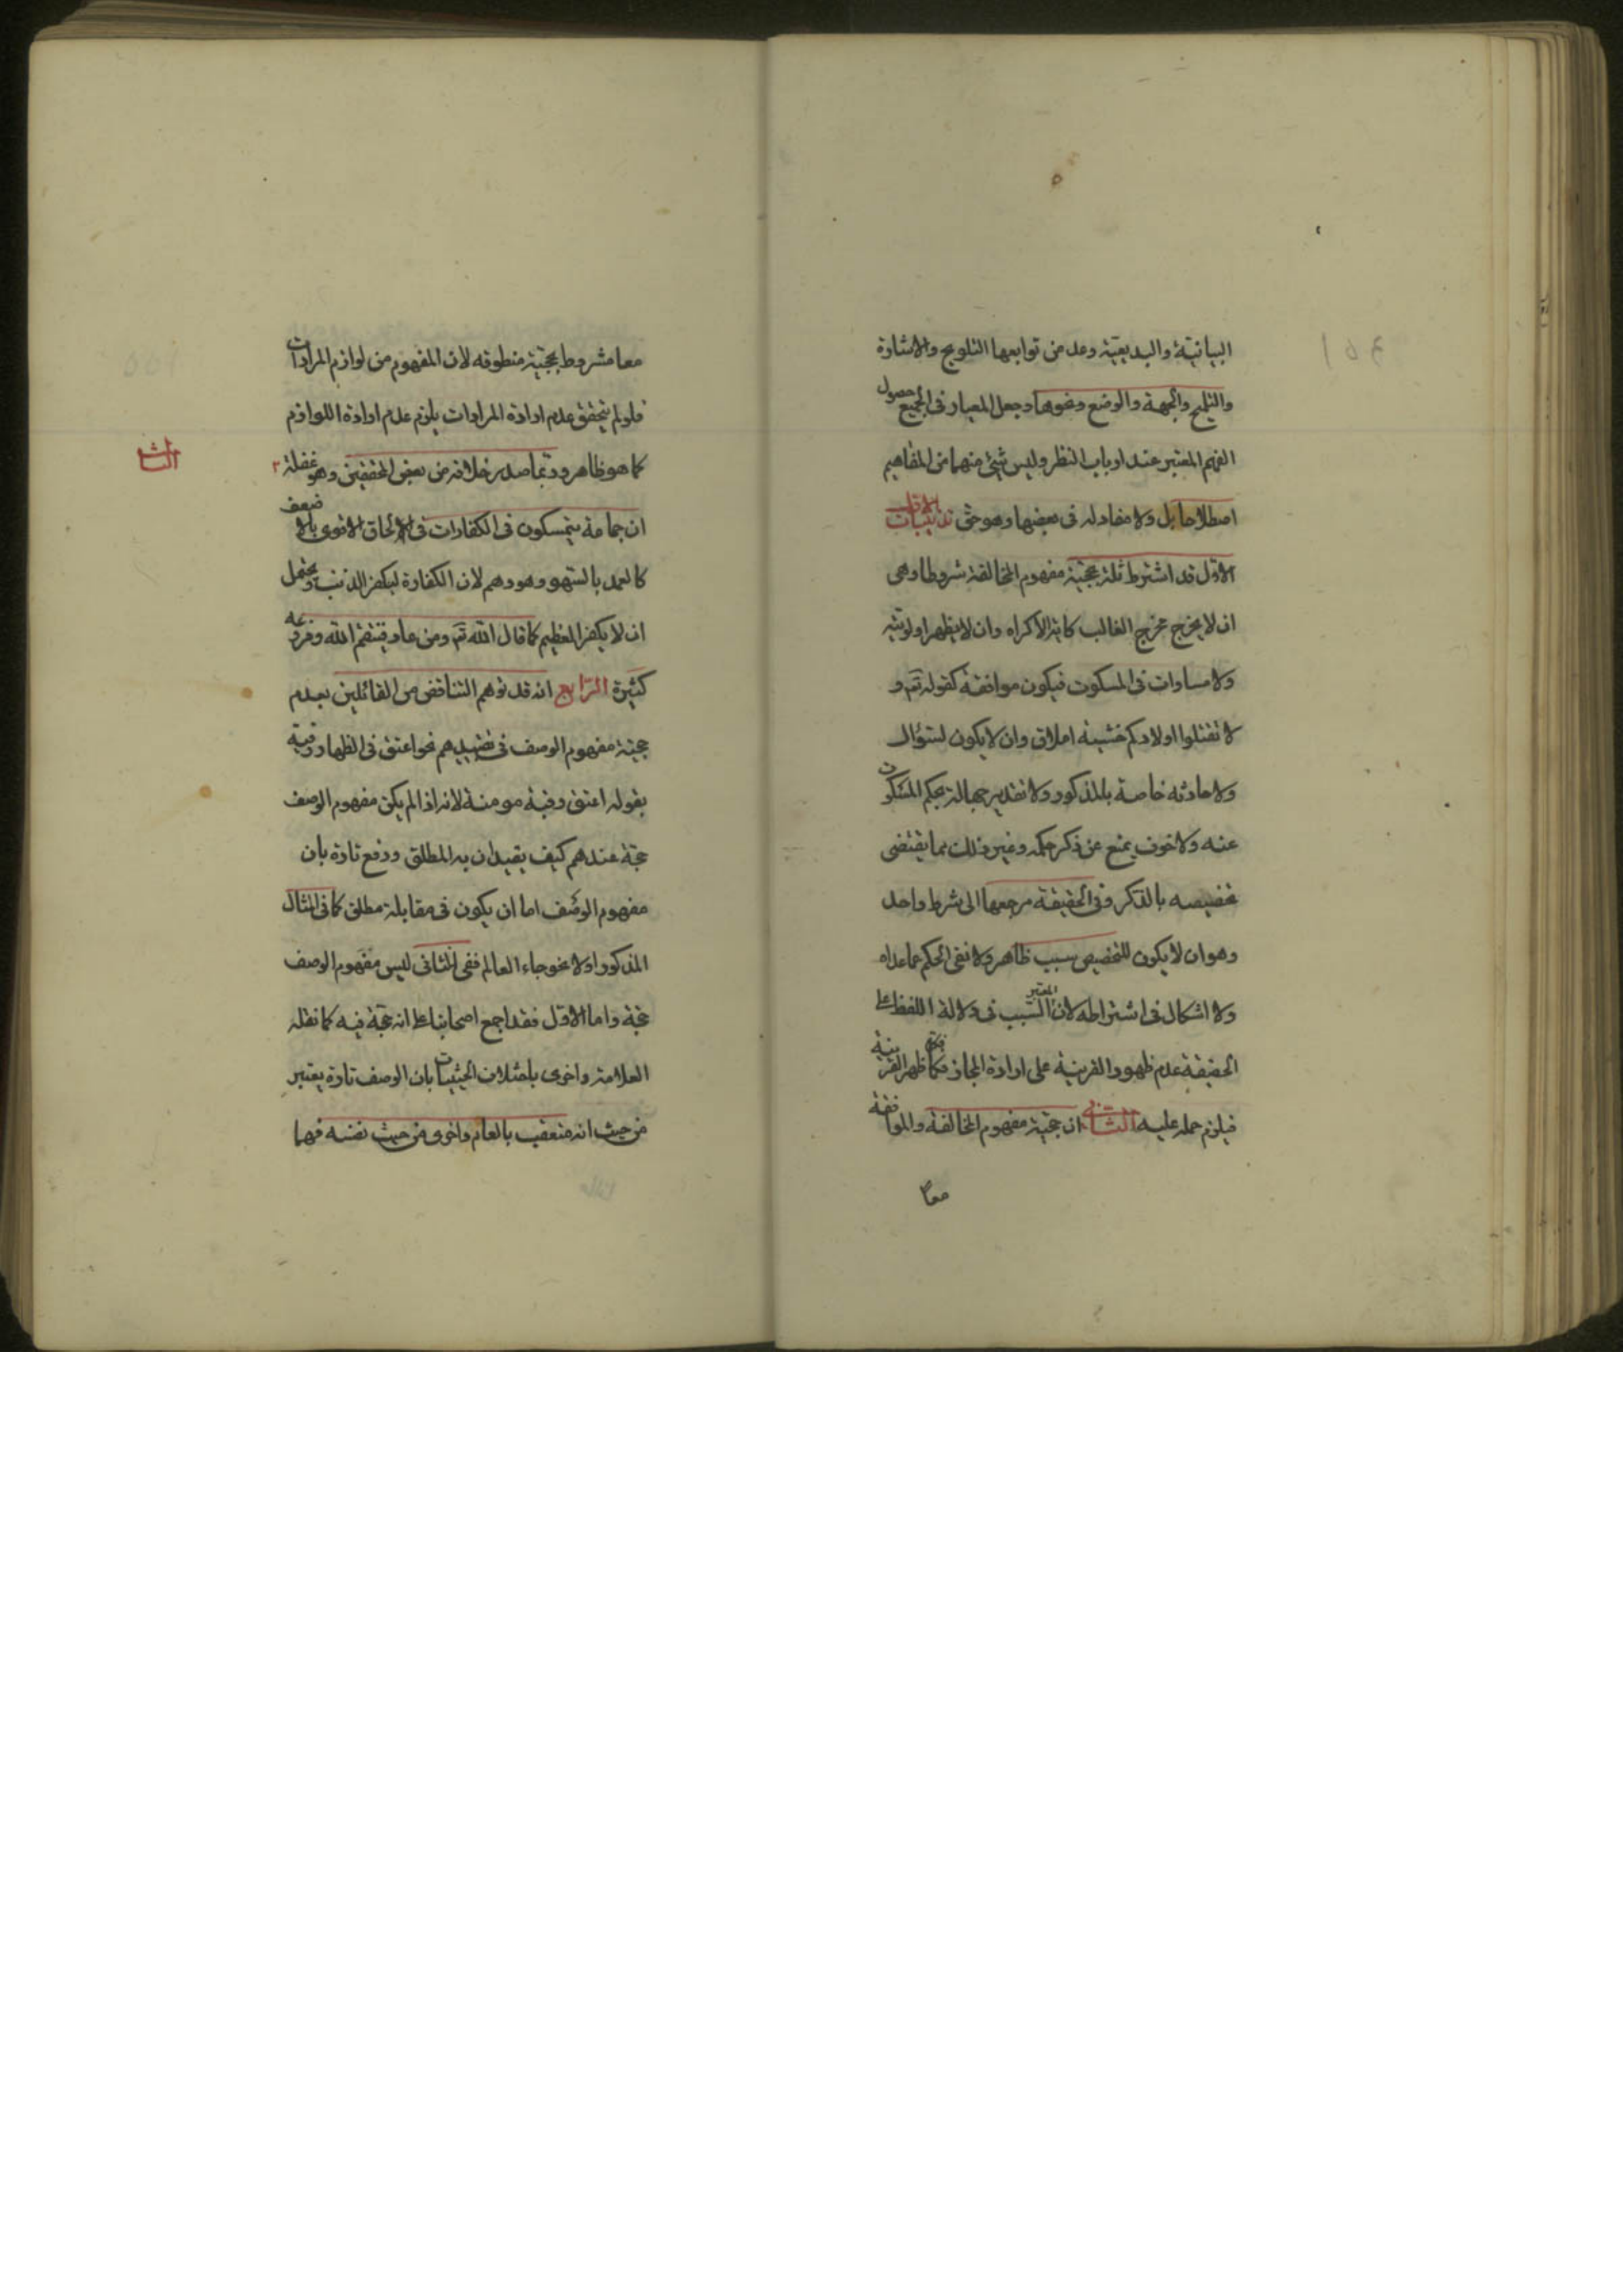 البيانيّة والبديعيّة وعد من توابعها التلويح والاشارة
والتلميح والجهة والوضع ونحوها وجعل المعيار فى الجميع حصول
الفهم المعتبر عند ارباب النظر وليس شئ منهما من المفاهيم
اصطلاحا بل ولا مفاد له فى بعضها وهو حق تذنيبات
الاوّل قد اشترط ثلة بحجيّة مفهوم المخالفة شروطا وهى
ان لا يخرج مخرج الغالب كاية الاكراه وان لا يظهر اولويّة
ولا مساوات فى المسكوت فيكون موافقة كقوله تعـ و
لا تقتلوا اولادكم خشية املاق وان لا يكون لسؤال
ولا حادثه خاصة بالمذكور ولا تقدير جهالة بحكم المسكوت
عنه ولا خوف يمنع عن ذكر حكمه وغير ذلك مما يقتضى
تخصيصه بالذكر وفى الحقيقة مرجعها الى شرط واحد
وهو ان لا يكون للتخصيص سبب ظاهر ولا نفى الحكم عما عداه
ولا اشكال فى اشتراطه لان المعتبر السبب فى دلالة اللفظ على
الحقيقة عدم ظهور القرينة على ارادة المجاز فكلما ظهر القرينة
فيلزم حمله عليه الثانى ان حجيّة مفهوم المخالفة والموافقة
معا
معا مشروط بحجيّة منطوقه لان المفهوم من لوازم المرادات
فلو لم يتحقق عدم ارادة المرادات يلزم عدم ارادة اللوازم
كما هو ظاهر وربما صدر خلافه من بعض المحققين وهو غفلة
الثالث
ان جماعة يتمسكون فى الكفارات فى الالحاق الاقوى بالاضعف
كالعمد بالسهو وهو وهم لان الكفارة ليكفر الذنب ويحتمل
ان لا يكفر العظيم كما قال الله تعـ ومن عاد فينتقم الله وفروعه
كثيرة الرّابع انه قد توهم التناقض من القائلين بعدم
حجيّة مفهوم الوصف فى تقييدهم نحو اعتق فى الظهار رقبة
بقوله اعتق رقبة مومنة لانه اذا لم يكن مفهوم الوصف
حجّة عندهم كيف يقيدان به المطلق ودفع تارة بان
مفهوم الوصف اما ان يكون فى مقابلة مطلق كما فى المثال
المذكور اولا نحو جاء العالم ففى الثانى ليس مفهوم الوصف
حجّة واما الاوّل فقد اجمع اصحابنا على انه حجّة فيه كما نقله
العلامة واخرى باختلاف الحيثيات بان الوصف تارة يعتبر
من حيث انه متعقب بالعام واخرى من حيث نفسه فهما